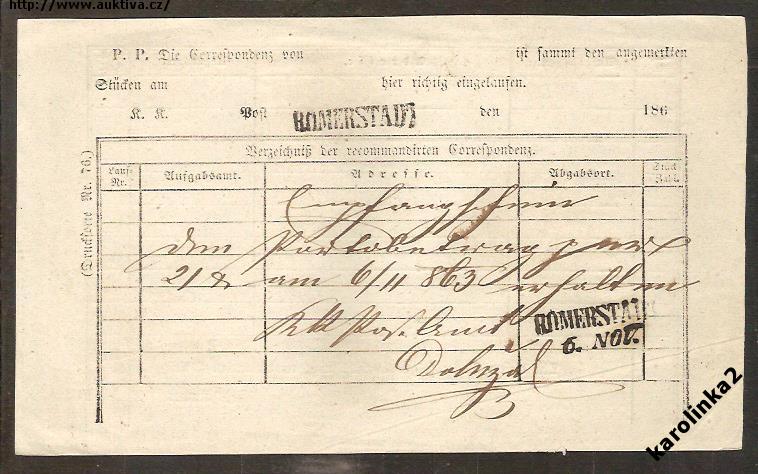 http://www.auktiva.cz/
P. P. Die Correspondenz von ist sammt den angemerkten
Stücken am hier richtig eingelaufen.
K. K. Post RÖMERSTADT den 186
(Drucksorte Nr. 76.)
Verzeichniß der recommandirten Correspondenz.
Lauf-Nr. Aufgabsamt. Adresse. Abgabsort. Stück-Zahl.
Empfangschein
den Portobetrag per
21 am 6/11 863 erhalten
KK Post Amt
RÖMERSTADT
6. NOV.
Dolezal
karolinka2